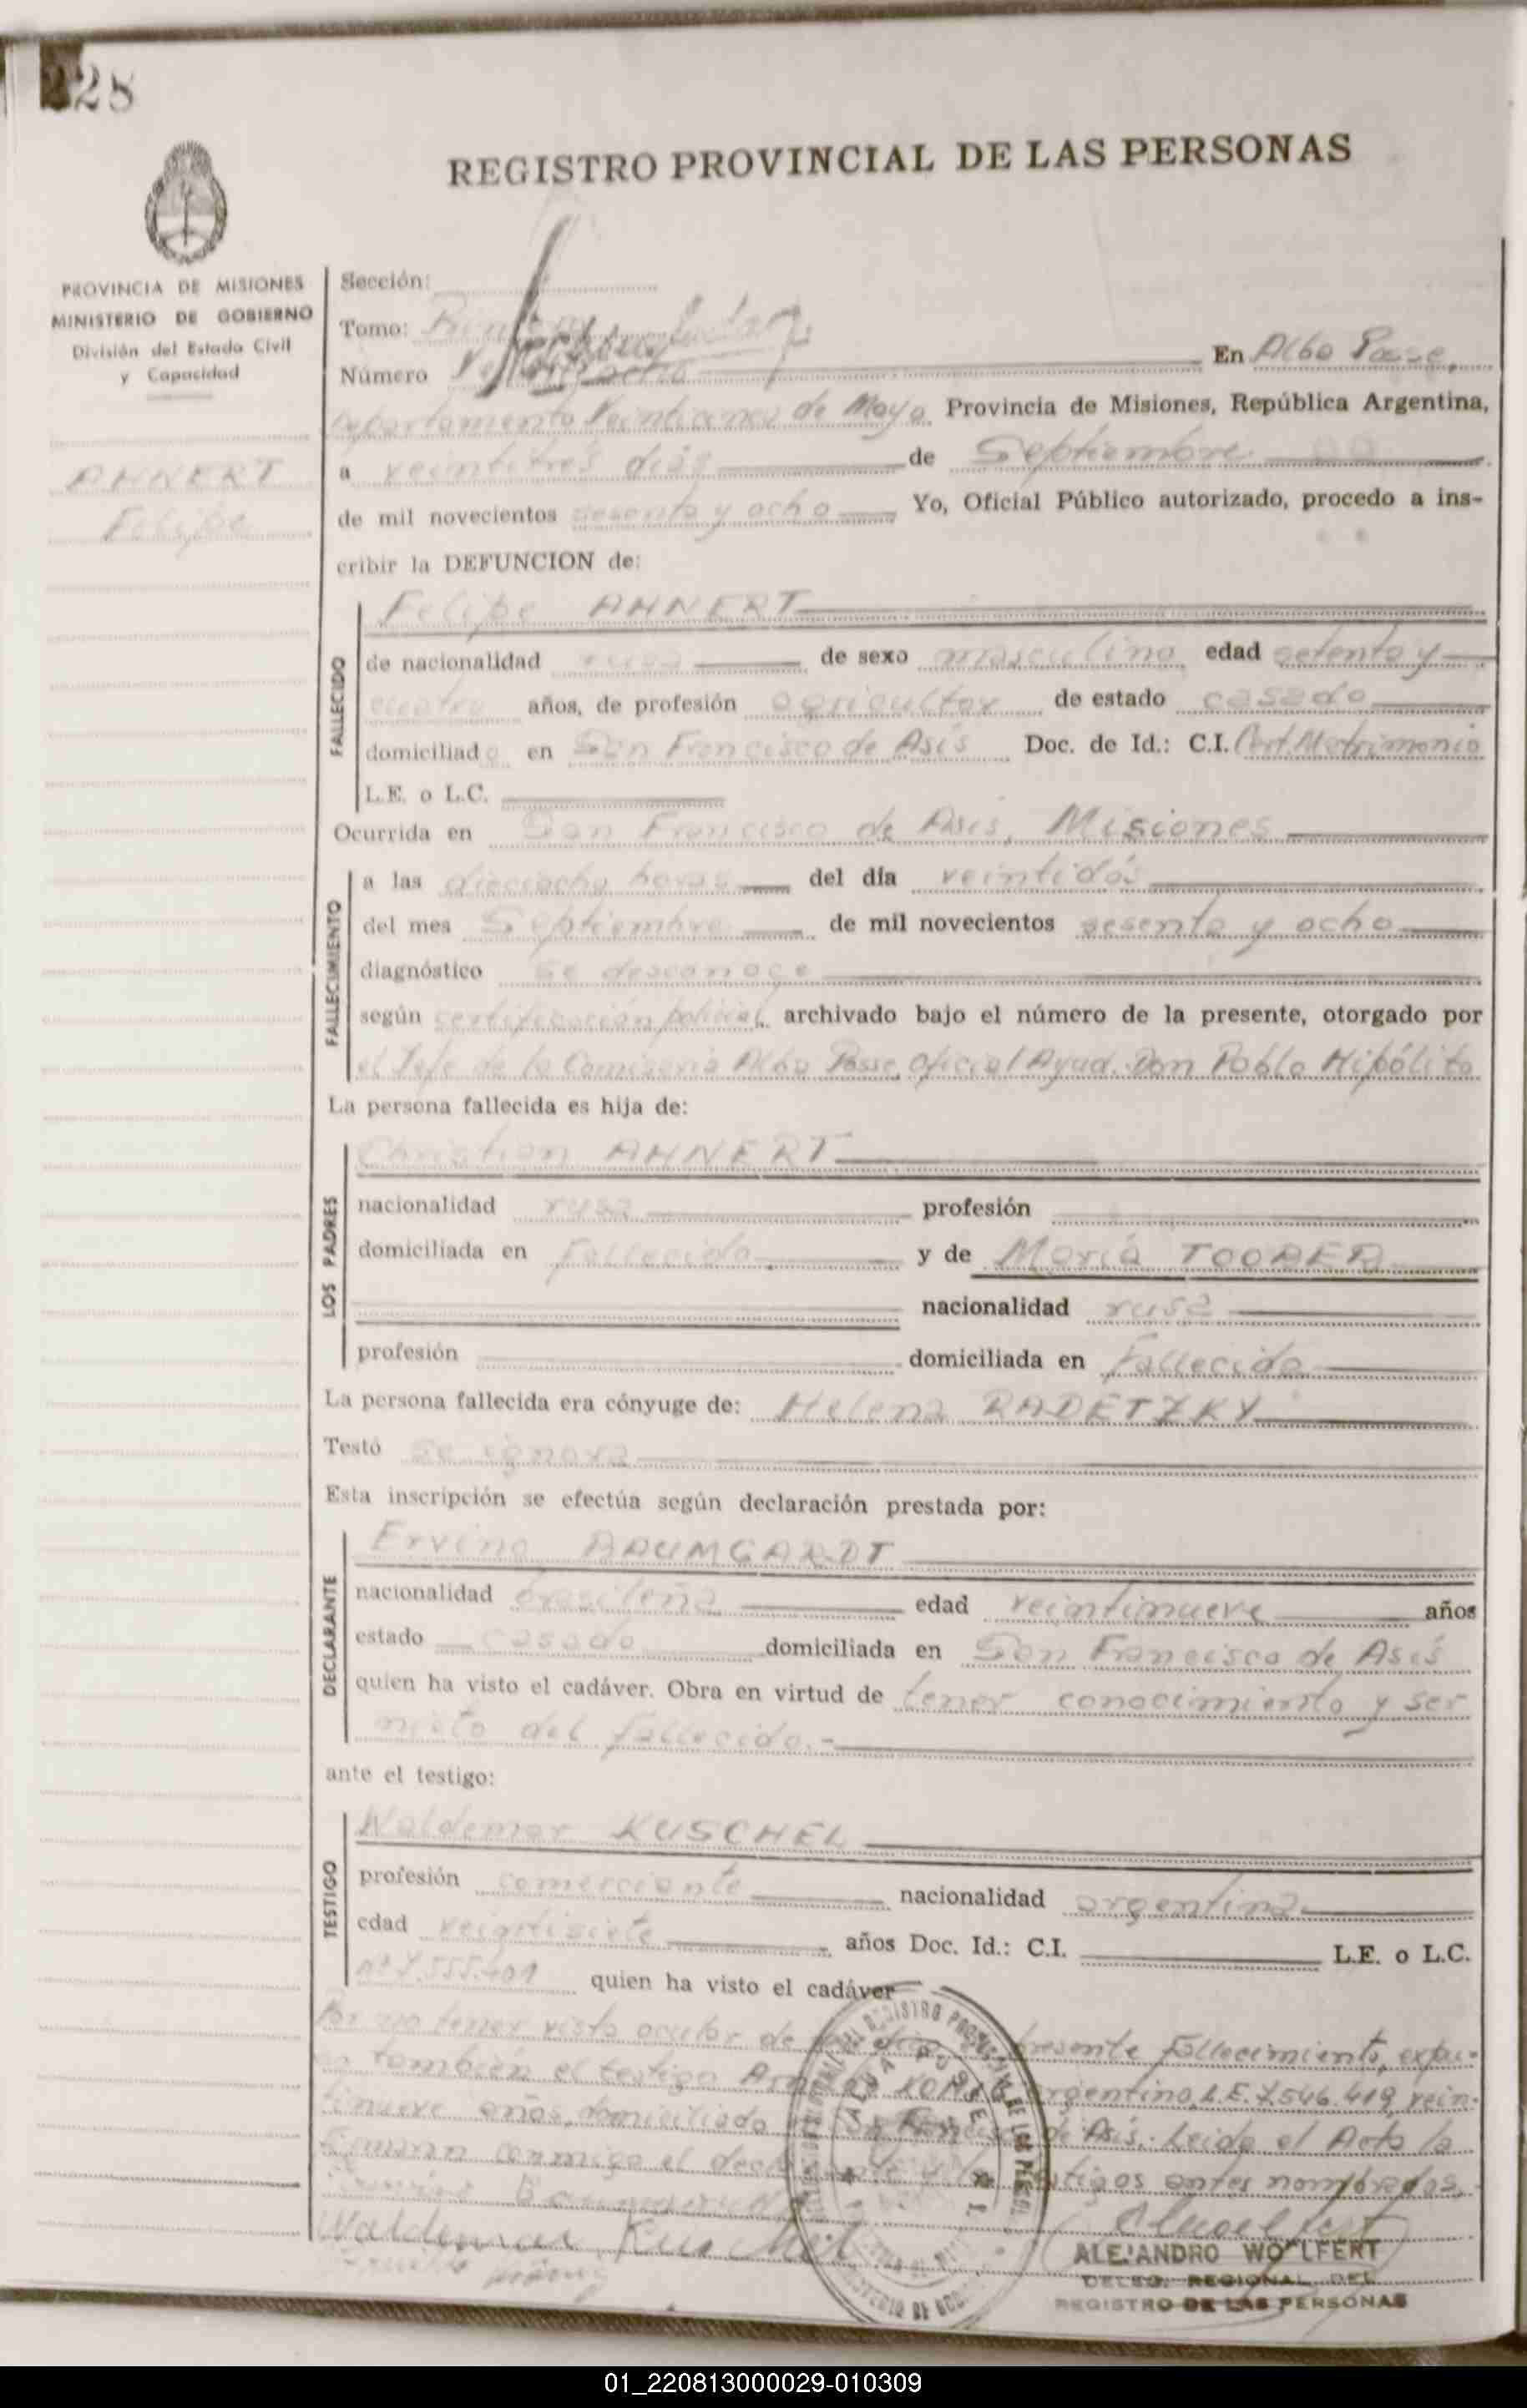 28
REGISTRO PROVINCIAL DE LAS PERSONAS
PROVINCIA DE MISIONES
MINISTERIO DE GOBIERNO
División del Estado Civil
y Capacidad
AHNERT
Felipe
Sección:
Tomo:
Número
En Alba Posse,
departamento Veinticinco de Mayo Provincia de Misiones, República Argentina,
a veintitrés días de Septiembre
de mil novecientos sesenta y ocho Yo, Oficial Público autorizado, procedo a ins-
cribir la DEFUNCION de:
FALLECIDO
Felipe AHNERT
de nacionalidad rusa de sexo masculino edad setenta y
cuatro años, de profesión agricultor de estado casado
domiciliado en San Francisco de Asís Doc. de Id.: C.I. Cert. Matrimonio
L.E. o L.C.
Ocurrida en San Francisco de Asís, Misiones
FALLECIMIENTO
a las dieciocho horas del día veintidós
del mes Septiembre de mil novecientos sesenta y ocho
diagnóstico se desconoce
según certificación policial, archivado bajo el número de la presente, otorgado por
el Jefe de la Comisaría Alba Posse, Oficial Ayud. Don Pablo Hipólito
La persona fallecida es hija de:
LOS PADRES
Christian AHNERT
nacionalidad rusa profesión
domiciliada en Fallecido. y de María TOOBER
nacionalidad rusa
profesión domiciliada en Fallecida
La persona fallecida era cónyuge de: Helena RADETZKY
Testó se ignora
Esta inscripción se efectúa según declaración prestada por:
DECLARANTE
Ervino BAUMGARDT
nacionalidad brasileña edad veintinueve años
estado casado domiciliada en San Francisco de Asís
quien ha visto el cadáver. Obra en virtud de tener conocimiento y ser
nieto del fallecido.-
ante el testigo:
TESTIGO
Waldemar KUSCHEL
profesión comerciante nacionalidad argentina
edad veintisiete años Doc. Id.: C.I. L.E. o L.C.
nº 7.555.401 quien ha visto el cadáver
Por no tener visto ocular de presente fallecimiento,
también el testigo KONIG argentino, L.E. 7.546.419, vein-
tinueve años, domiciliado en San Francisco de Asís. Leída el Acta la
firman conmigo el declarante y los testigos antes nombrados.
Waldemar Kuschel
ALBA POSSE
ALEJANDRO WOLFERT
DELEG. REGIONAL DEL
REGISTRO DE LAS PERSONAS
01_220813000029-010309